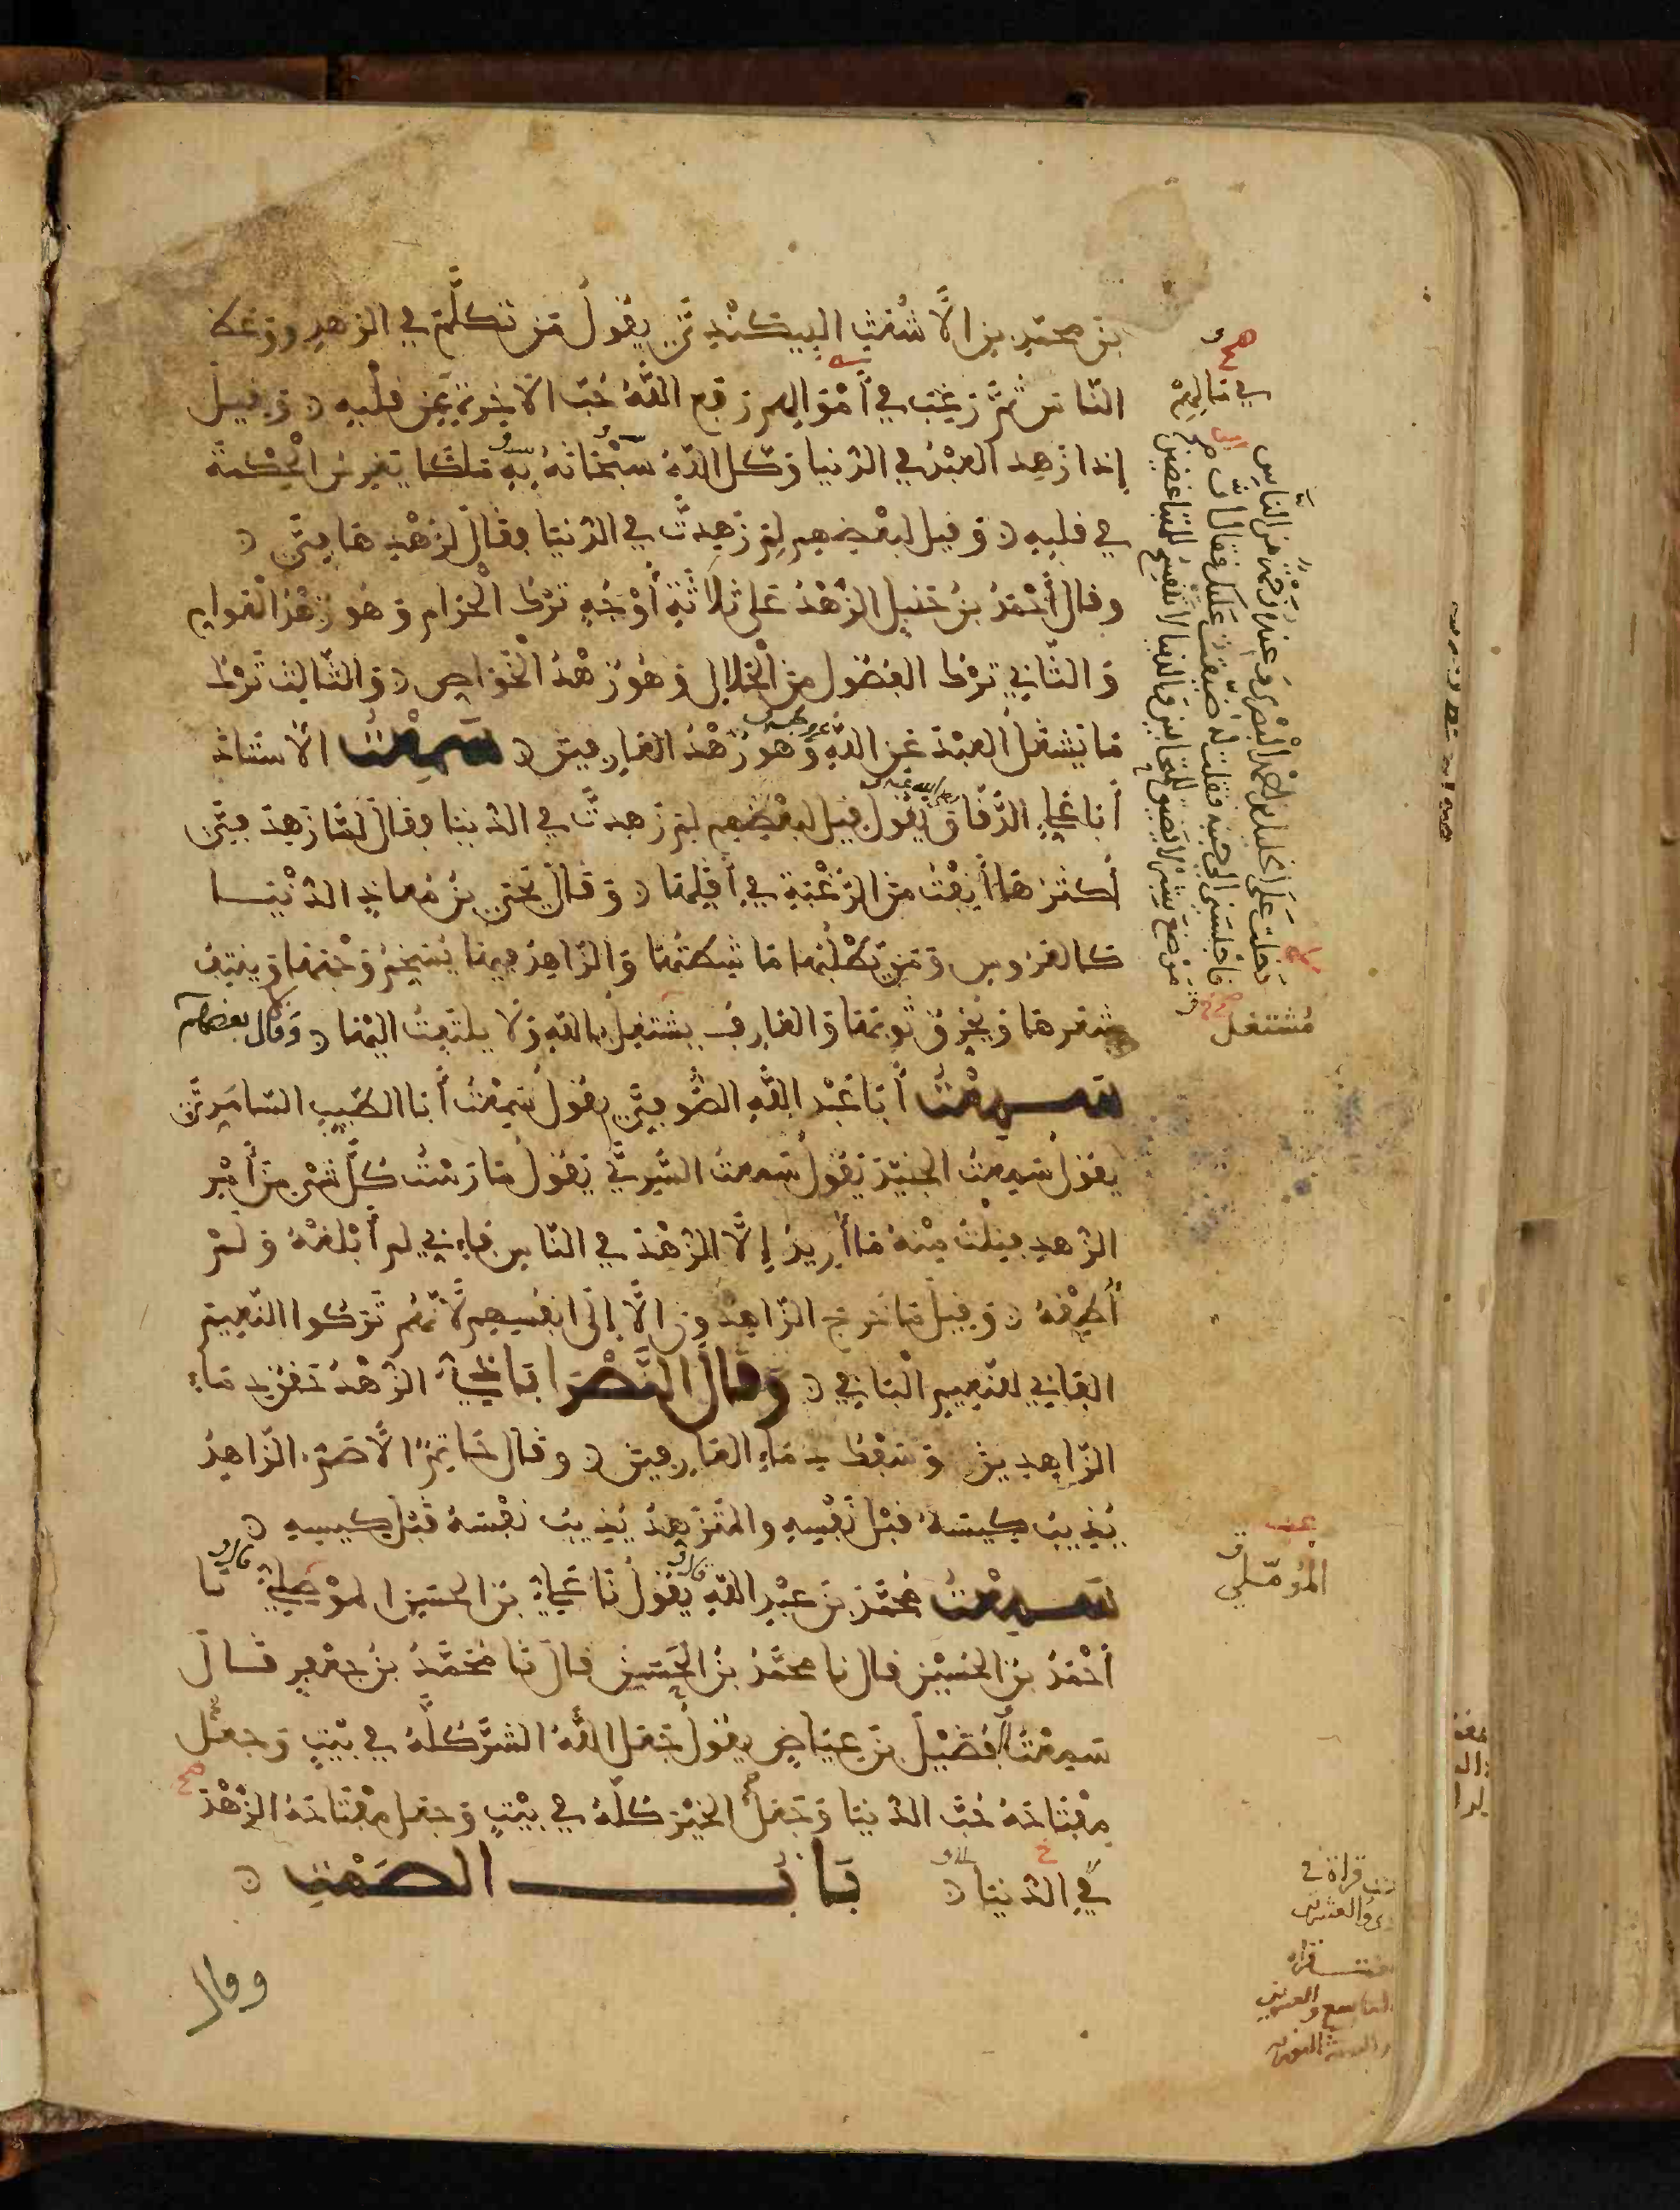 بن محمد بن الأشعث البيكندي يقول من تكلم في الزهد ووعظ
الناس ثم رغب في أموالهم رفع الله حب الآخرة من قلبه وقيل
إذا زهد العبد في الدنيا وكل الله سبحانه به ملكا يغرس الحكمة
في قلبه وقيل لبعضهم لم زهدت في الدنيا فقال لزهدها في
وقال أحمد بن حنبل الزهد على ثلاثة أوجه ترك الحرام وهو زهد العوام
والثاني ترك الفضول من الحلال وهو زهد الخواص والثالث ترك
ما يشغل العبد عن الله وهو زهد العارفين سمعت الأستاذ
أبا علي الدقاق يقول قيل لبعضهم لم زهدت في الدنيا فقال لما زهد في
أكثرها أنفت من الرغبة في أقلها وقال يحيى بن معاذ الدنيا
كالعروس ومن يطلبها ماشطتها والزاهد فيها يسخم وجهها وينتف
شعرها ويخرق ثوبها والعارف يشتغل بالله ولا يلتفت إليها وقال بعضهم
سمعت أبا عبد الله الصوفي يقول سمعت أبا الطيب السامري
يقول سمعت الجنيد يقول سمعت السري يقول مارست كل شيء من أمر
الزهد فنلت منه ما أريد إلا الزهد في الناس فإني لم أبلغه ولم
أطقه وقيل ما خرج الزاهدون إلا إلى أنفسهم لأنهم تركوا النعيم
الفاني للنعيم الباقي وقال النصراباذي الزهد حقن دماء
الزاهدين وسفك دماء العارفين وقال حاتم الأصم الزاهد
يذيب كيسه قبل نفسه والمتزهد يذيب نفسه قبل كيسه
سمعت محمد بن عبد الله يقول نا علي بن الحسين الموصلي نا
أحمد بن الحسين قال نا محمد بن الحسين قال نا محمد بن جعفر قال
سمعت الفضيل بن عياض يقول جعل الله الشر كله في بيت وجعل
مفتاحه حب الدنيا وجعل الخير كله في بيت وجعل مفتاحه الزهد
في الدنيا باب الصمت
وقال
مشتغل
المؤملي